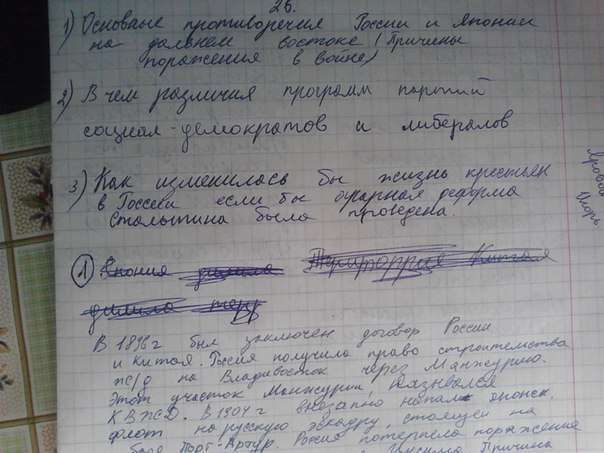 2в.
1) Основные противоречия России и Японии
на дальнем востоке (Причины
поражения в войне)
2) В чем различия программ партий
социал-демократов и либералов
3) Как изменилась бы жизнь крестьян
в России если бы аграрная реформа
Столыпина была проведена.
1) Япония делила Территорию Китая
делила терр
В 1896г был заключен договор России
и Китая. Россия получила право строительства
ж/д на Владивосток через Манжурию.
Этот участок Манжурии, назывался
КВЖД. В 1904г внезапно напал японск.
флот на русскую эскадру, стоящей на
базе Порт-Артур. Россия потерпела поражение
Цусима Причина
Яровой
Игорь